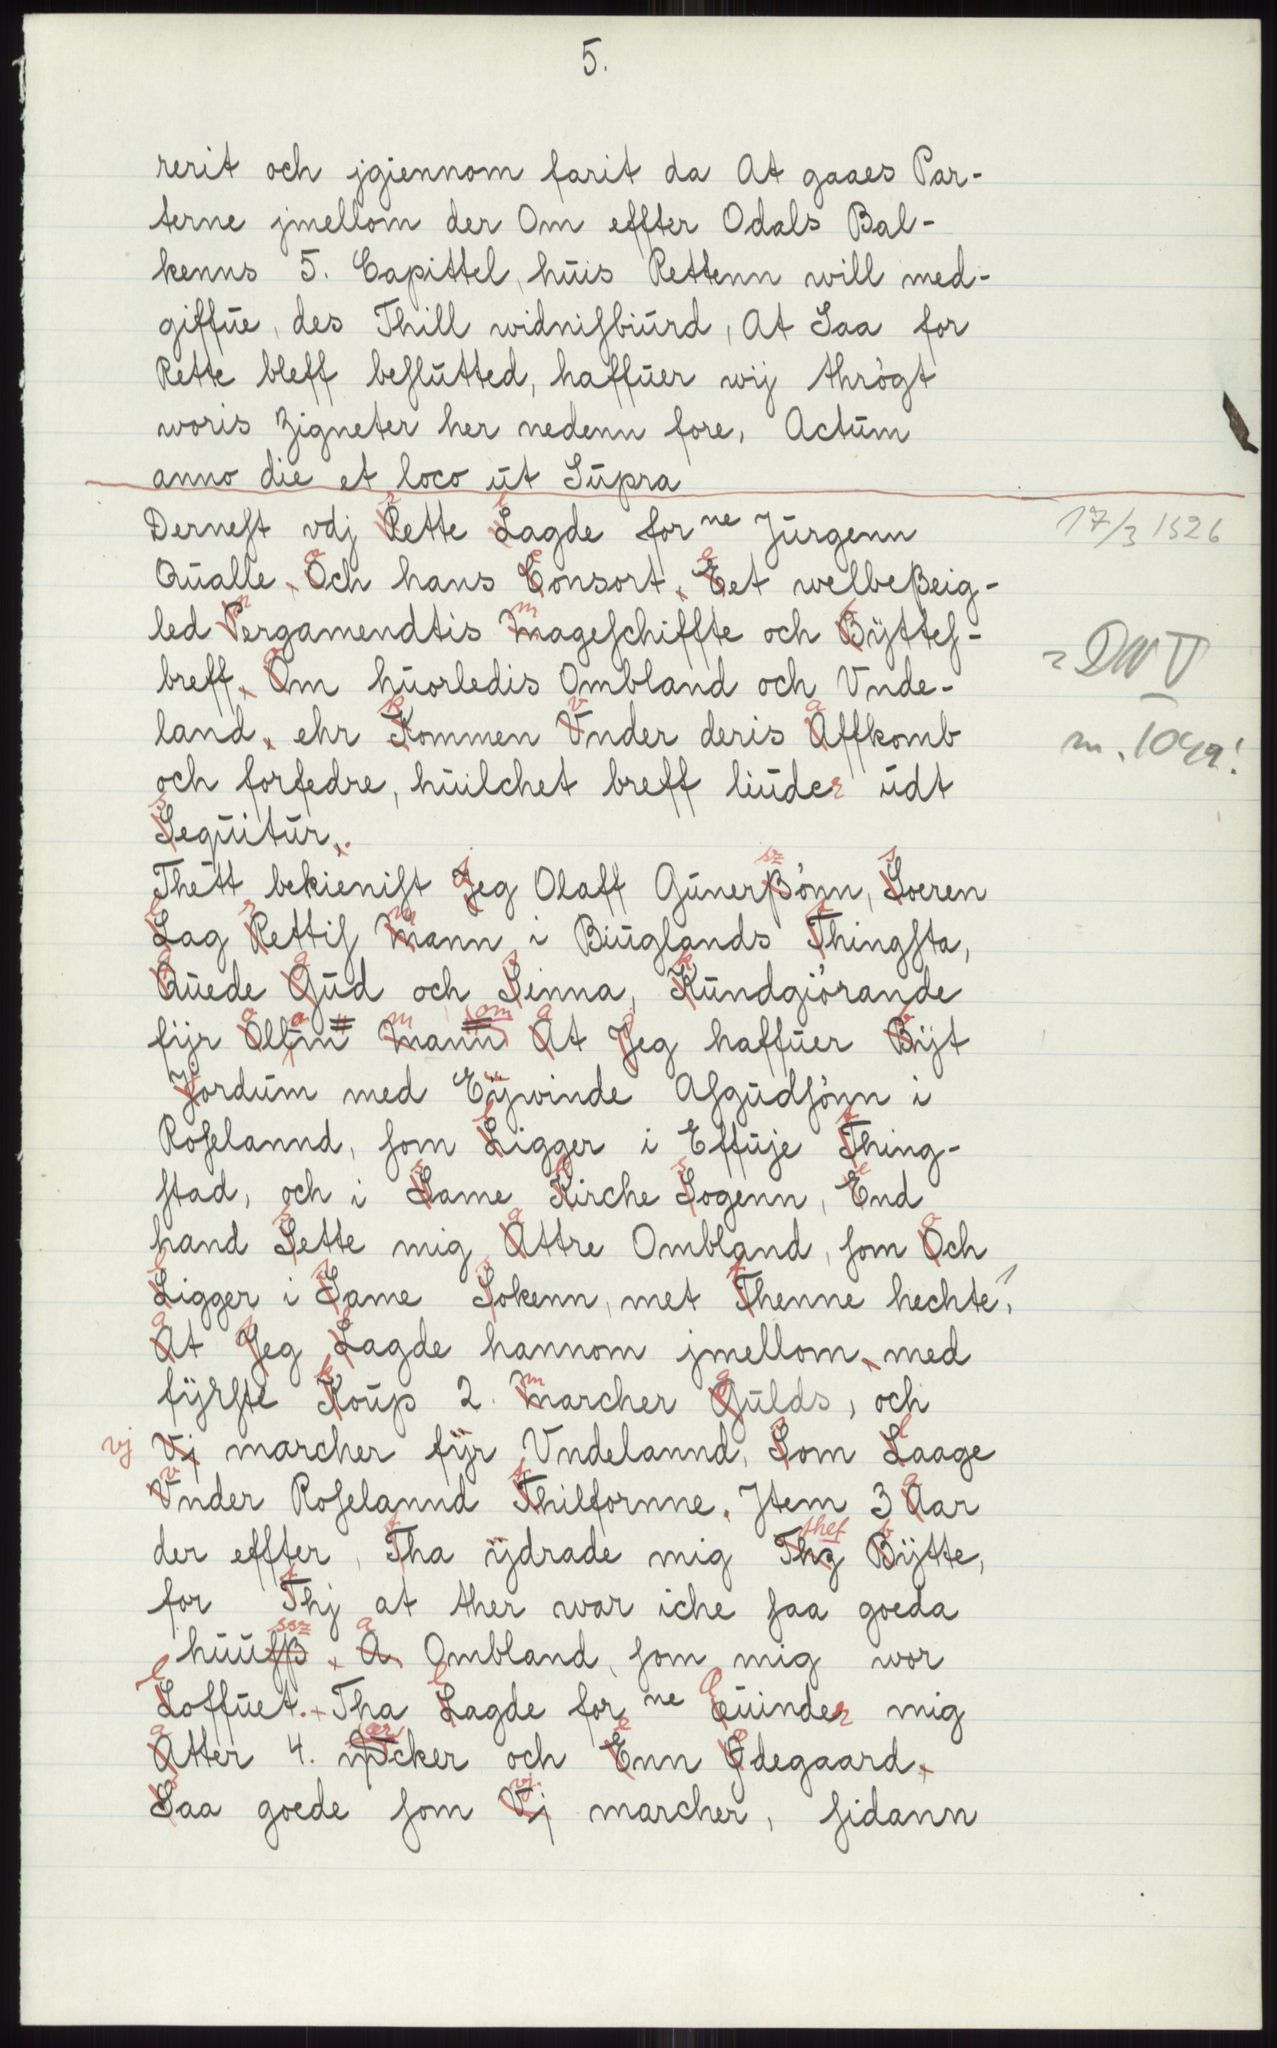 5.
rerit och jgiennom farit da At gaaes Par-
terne jmellom der Om effter Odals Bal-
kenns 5. Capittel, huis Rettenn will med-
giffue, des Thill widnisbiurd, At Saa for
Rette bleff beslutted, haffuer wij thrögt
woris Zigneter her nedenn fore, Actum
anno die et loco ut Supra
Dernest vdj Rette Lagde for ne Jürgenn
17/3 1526
Qualle, Och hans Consort, Eet welbeßeig-
led Pergamendtis Mageschiffte och Byttes-
breff, Om huorledis Ombland och Vnde-
= DN V
land, ehr Kommen Vnder deris Affkomb
n. 1049!
och forfedre, huilchet breff liuder udt
Sequitur.
Thett bekienist Jeg Olaff Gunerßönn, Soeren
Lag Rettis Mann i Biuglands Thingsta,
Quede Gud och Sinna, Kundgiörande
fijr Ollm Mann At Jeg haffuer Bijt
Jordum med Eijwinde Asgudsönn i
Roselannd, som Ligger i Effuje Thing-
stad, och i Same Kirche Sogenn, End
hand Sette mig Attre Ombland, som Och
Ligger i Same Sokenn, met Thenne hechte,
At Jeg Lagde hannom jmellom, med
fijrste Koup 2. Marcher Gulds, och
vj Vj marcher fijr Vndelannd, Som Laage
Vnder Roselannd Thilfornne. Jtem 3 Aar
der effter, Tha ÿdrade mig Thz Bÿtte,
for Thj at ther war iche saa goeda
huusß, A Ombland, som mig wor
Loffuet. Tha Lagde for ne Euinder mig
Atter 4. cker och Enn Ødegaard,
Saa goede som Vj marcher, sidann